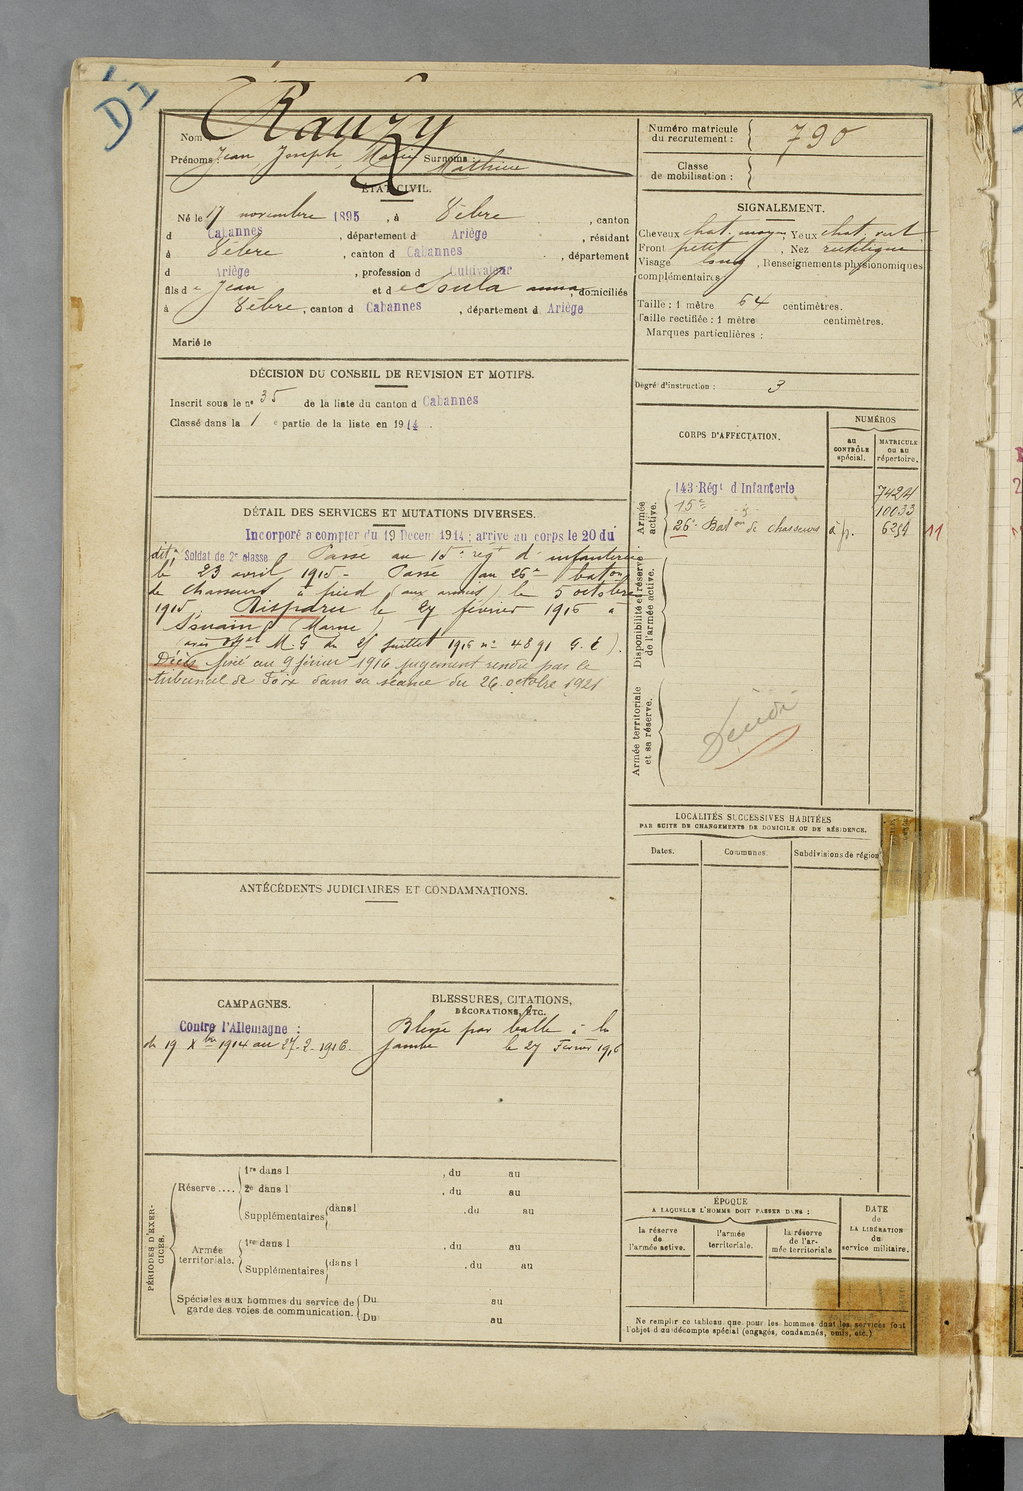 D1
Nom Rauzy
Prénoms : Jean Joseph, Marie Surnoms : Mathieu
ÉTAT CIVIL.
Né le 17 novembre 1895, à Vèbre, canton
d Cabannes, département d Ariège, résidant
à Vèbre, canton d Cabannes, département
d Ariège, profession d Cultivateur
fils d e Jean et d e domiciliés
à Vèbre, canton d Cabannes, département d Ariège
Marié le
DÉCISION DU CONSEIL DE REVISION ET MOTIFS.
Inscrit sous le n° 35 de la liste du canton d Cabannes
Classé dans la 1 e partie de la liste en 1914.
DÉTAIL DES SERVICES ET MUTATIONS DIVERSES.
Incorporé a compter du 19 Décem 1914 ; arrive au corps le 20 du
dit, Soldat de 2e classe Passé au 15e régt d'infanterie
le 23 avril 1915 - Passé au 26e baton
de chasseurs à pied (aux armées) le 5 octobre
1915. Disparu le 27 février 1916 à
Souain (Marne)
(avis offel M. G du 25 juillet 1916 n° 4891 G. E).
Décès fixé au 9 février 1916 jugement rendu par le
tribunal de Foix dans sa séance du 26 octobre 1921
ANTÉCÉDENTS JUDICIAIRES ET CONDAMNATIONS.
CAMPAGNES.
Contre l'Allemagne :
du 19 Xbre 1914 au 27-2-1916.
BLESSURES, CITATIONS,
DÉCORATIONS, ETC.
Blessé par balle à la
jambe le 27 Février 1916
PÉRIODES D'EXER-
CICES.
Réserve ....
1re dans l , du au
2e dans l , du au
Supplémentaires dans l , du au
Armée
territoriale.
1re dans l , du au
Supplémentaires dans l , du au
Spéciales aux hommes du service de
garde des voies de communication.
Du au
Du au
Numéro matricule
du recrutement : 790
Classe
de mobilisation :
SIGNALEMENT.
Cheveux chat. moyen, Yeux chat. vert
Front petit, Nez rectiligne
Visage long, Renseignements physionomiques
complémentaires :
Taille : 1 mètre 64 centimètres.
Taille rectifiée : 1 mètre centimètres.
Marques particulières :
Degré d'instruction : 3
CORPS D'AFFECTATION.
NUMÉROS
au
CONTRÔLE
spécial.
MATRICULE
OU AU
répertoire.
Armée
active.
143 Régt d'Infanterie
15e 10033
26e Baton de chasseurs à p. 6254 11
Disponibilité et réserve
de l'armée active.
Armée territoriale
et sa réserve.
LOCALITÉS SUCCESSIVES HABITÉES
PAR SUITE DE CHANGEMENTS DE DOMICILE OU DE RÉSIDENCE.
Dates. Communes. Subdivisions de région
ÉPOQUE
A LAQUELLE L'HOMME DOIT PASSER DANS :
la réserve
de
l'armée active.
l'armée
territoriale.
la réserve
de l'ar-
mée territoriale
DATE
de
LA LIBÉRATION
du
service militaire.
Ne remplir ce tableau que pour les hommes dont les services font
l'objet d'un décompte spécial (engagés, condamnés, omis, etc.)